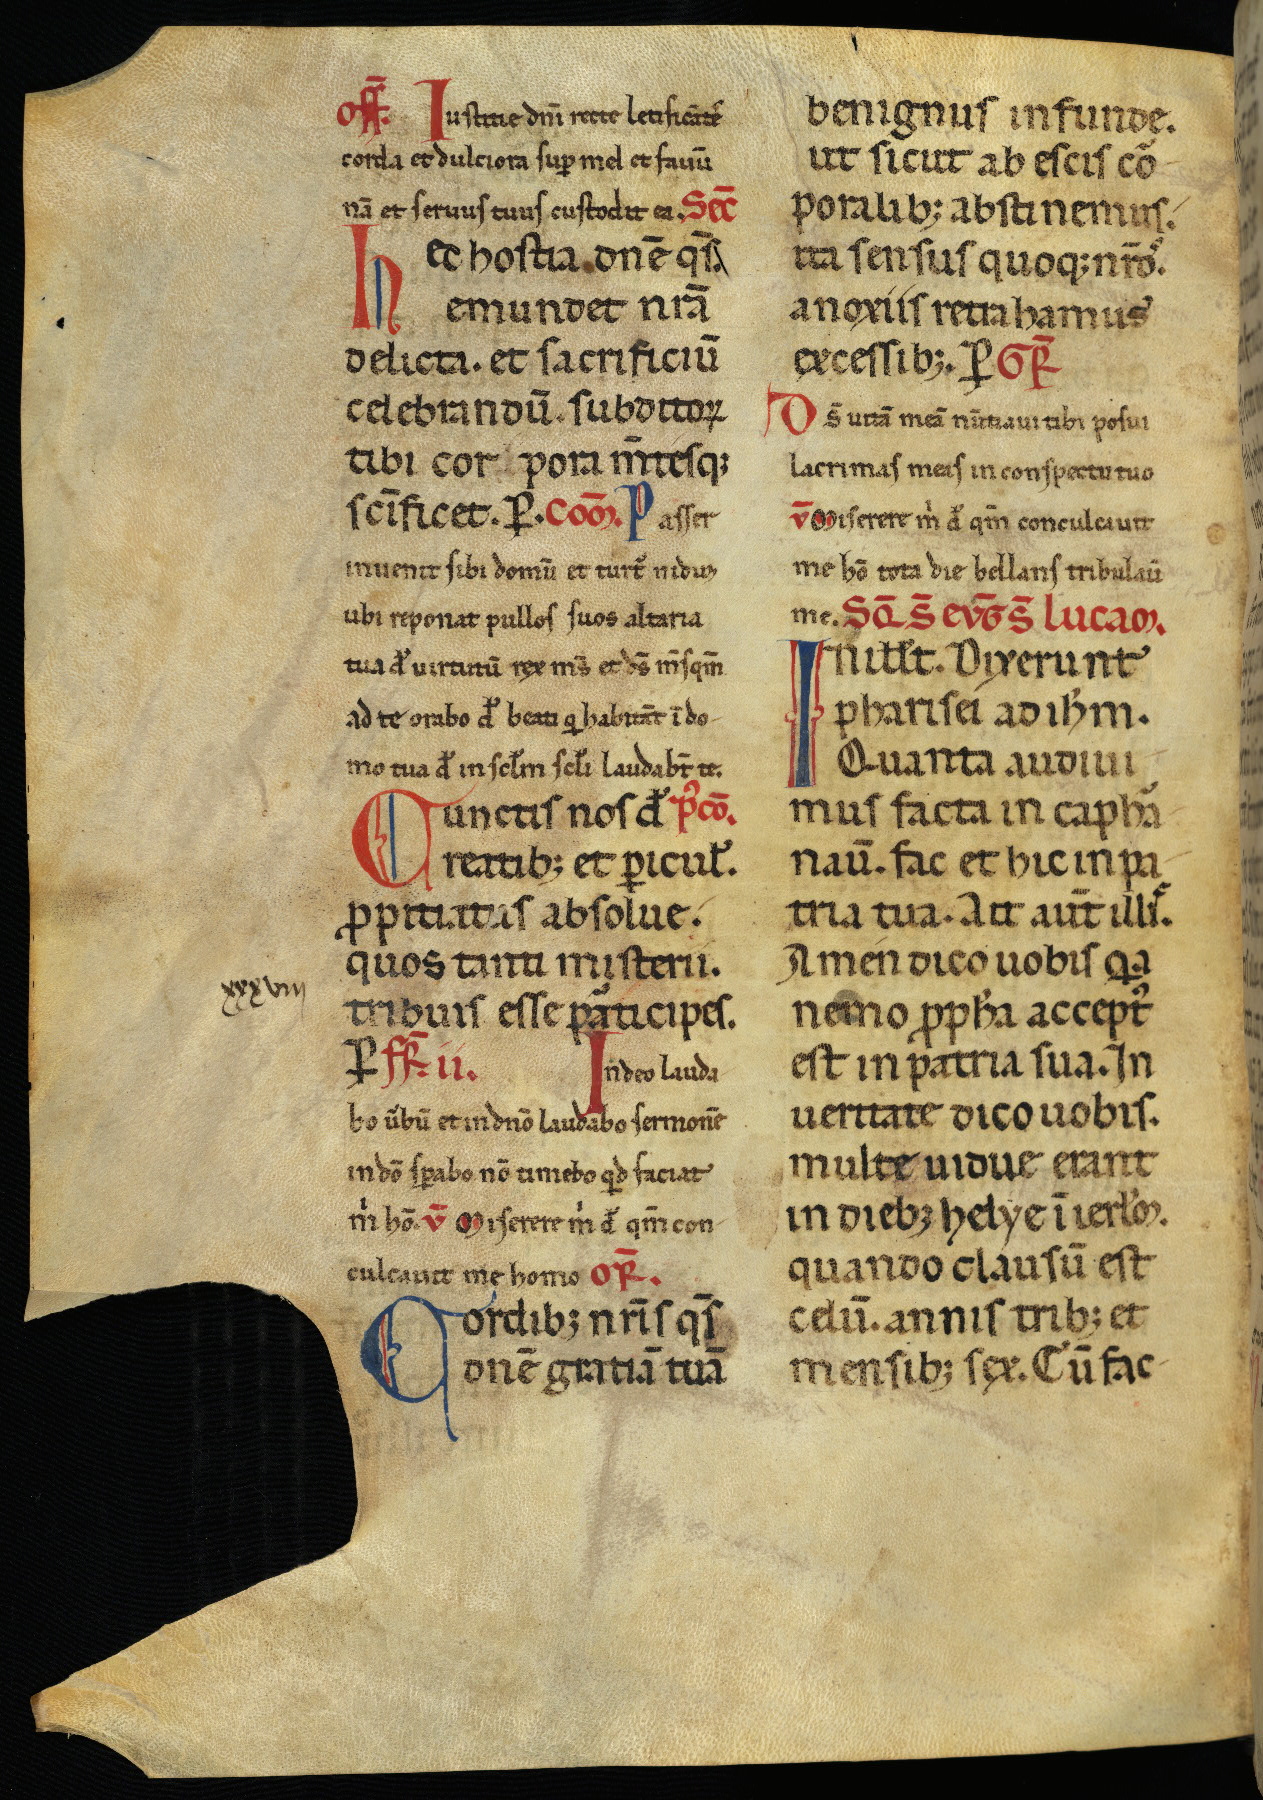 off̄. Iustitie dn̄i recte letificātes
corda et dulciora suꝑ mel et fauū
nā et seruus tuus custodit ea. Sec̄
hec hostia. dn̄e qs̄
emundet nr̄a
delicta. et sacrificiū
celebrandū. subditoꝝ
tibi cor pora m̄tesqꝫ
sc̄ificet. ꝑ. Com̄. Passer
inuenit sibi domū et turt̉ nidū
ubi reponat pullos suos altaria
tua d̉ uirtutū rex ms̄ et ds̄ ms̄ qm̄
ad te orabo d̉ beati q̇ habitāt ī do-
mo tua d̉ in scl̄m scl̄i laudabt̄ te.
Cunctis nos d̉ p̉cō.
reatibꝫ et ꝑicul̉.
ꝓpitiatus absolue.
quos tanti misterii.
xxxviii
tribuis esse pāticipes.
ꝑ fr̄. ii. In deo lauda
bo ūbū et in dn̄o laudabo sermonē
in dō sꝑabo nō timebo qd̄ faciat
ṁ hō. v̄ Miserere ṁ d̄ qm̄ con-
culcauit me homo oꝶ.
Cordibꝫ nr̄is qs̄
dn̄e gratiā tuā
benignus infunde.
ut sicut ab escis cō-
poralibꝫ abstinemus.
ita sensus quoqꝫ nr̄os.
a noxiis retrahamus
excessibꝫ. ꝑ Gꝶ
Ds̄ uitā meā nūtiaui tibi posui
lacrimas meas in conspectu tuo
v̄ Miserere ṁ d̄ qm̄ conculcauit
me hō tota die bellans tribulaū
me. Sq̄ s̄ evḡ s̄ lucam.
In illt̉. Dixerunt
pharisei ad ih̄m.
Quanta audiui
mus facta in caphā
naū. fac et hic in pa-
tria tua. Ait aut̄ illis.
Amen dico uobis qa
nemo ꝓph̄a accept̉
est in patria sua. In
ueritate dico uobis.
multe uidue erant
in diebꝫ helye ī ierl̄m.
quando clausū est
celū. annis tribꝫ et
mensibꝫ sex. Cū fac-